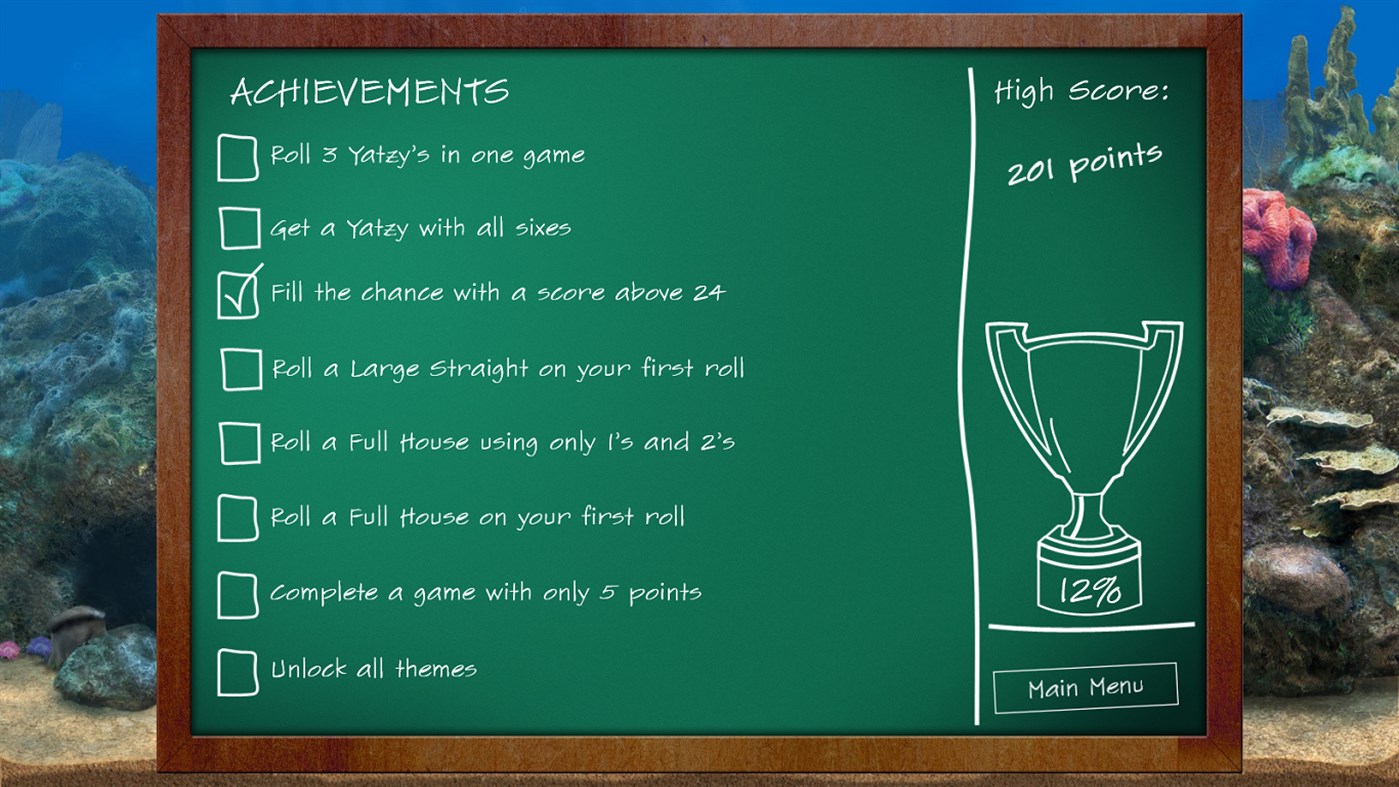 ACHIEVEMENTS
Roll 3 Yatzy's in one game
Get a Yatzy with all sixes
Fill the chance with a score above 24
Roll a Large Straight on your first roll
Roll a Full House using only 1's and 2's
Roll a Full House on your first roll
Complete a game with only 5 points
Unlock all themes
High Score:
201 points
12%
Main Menu